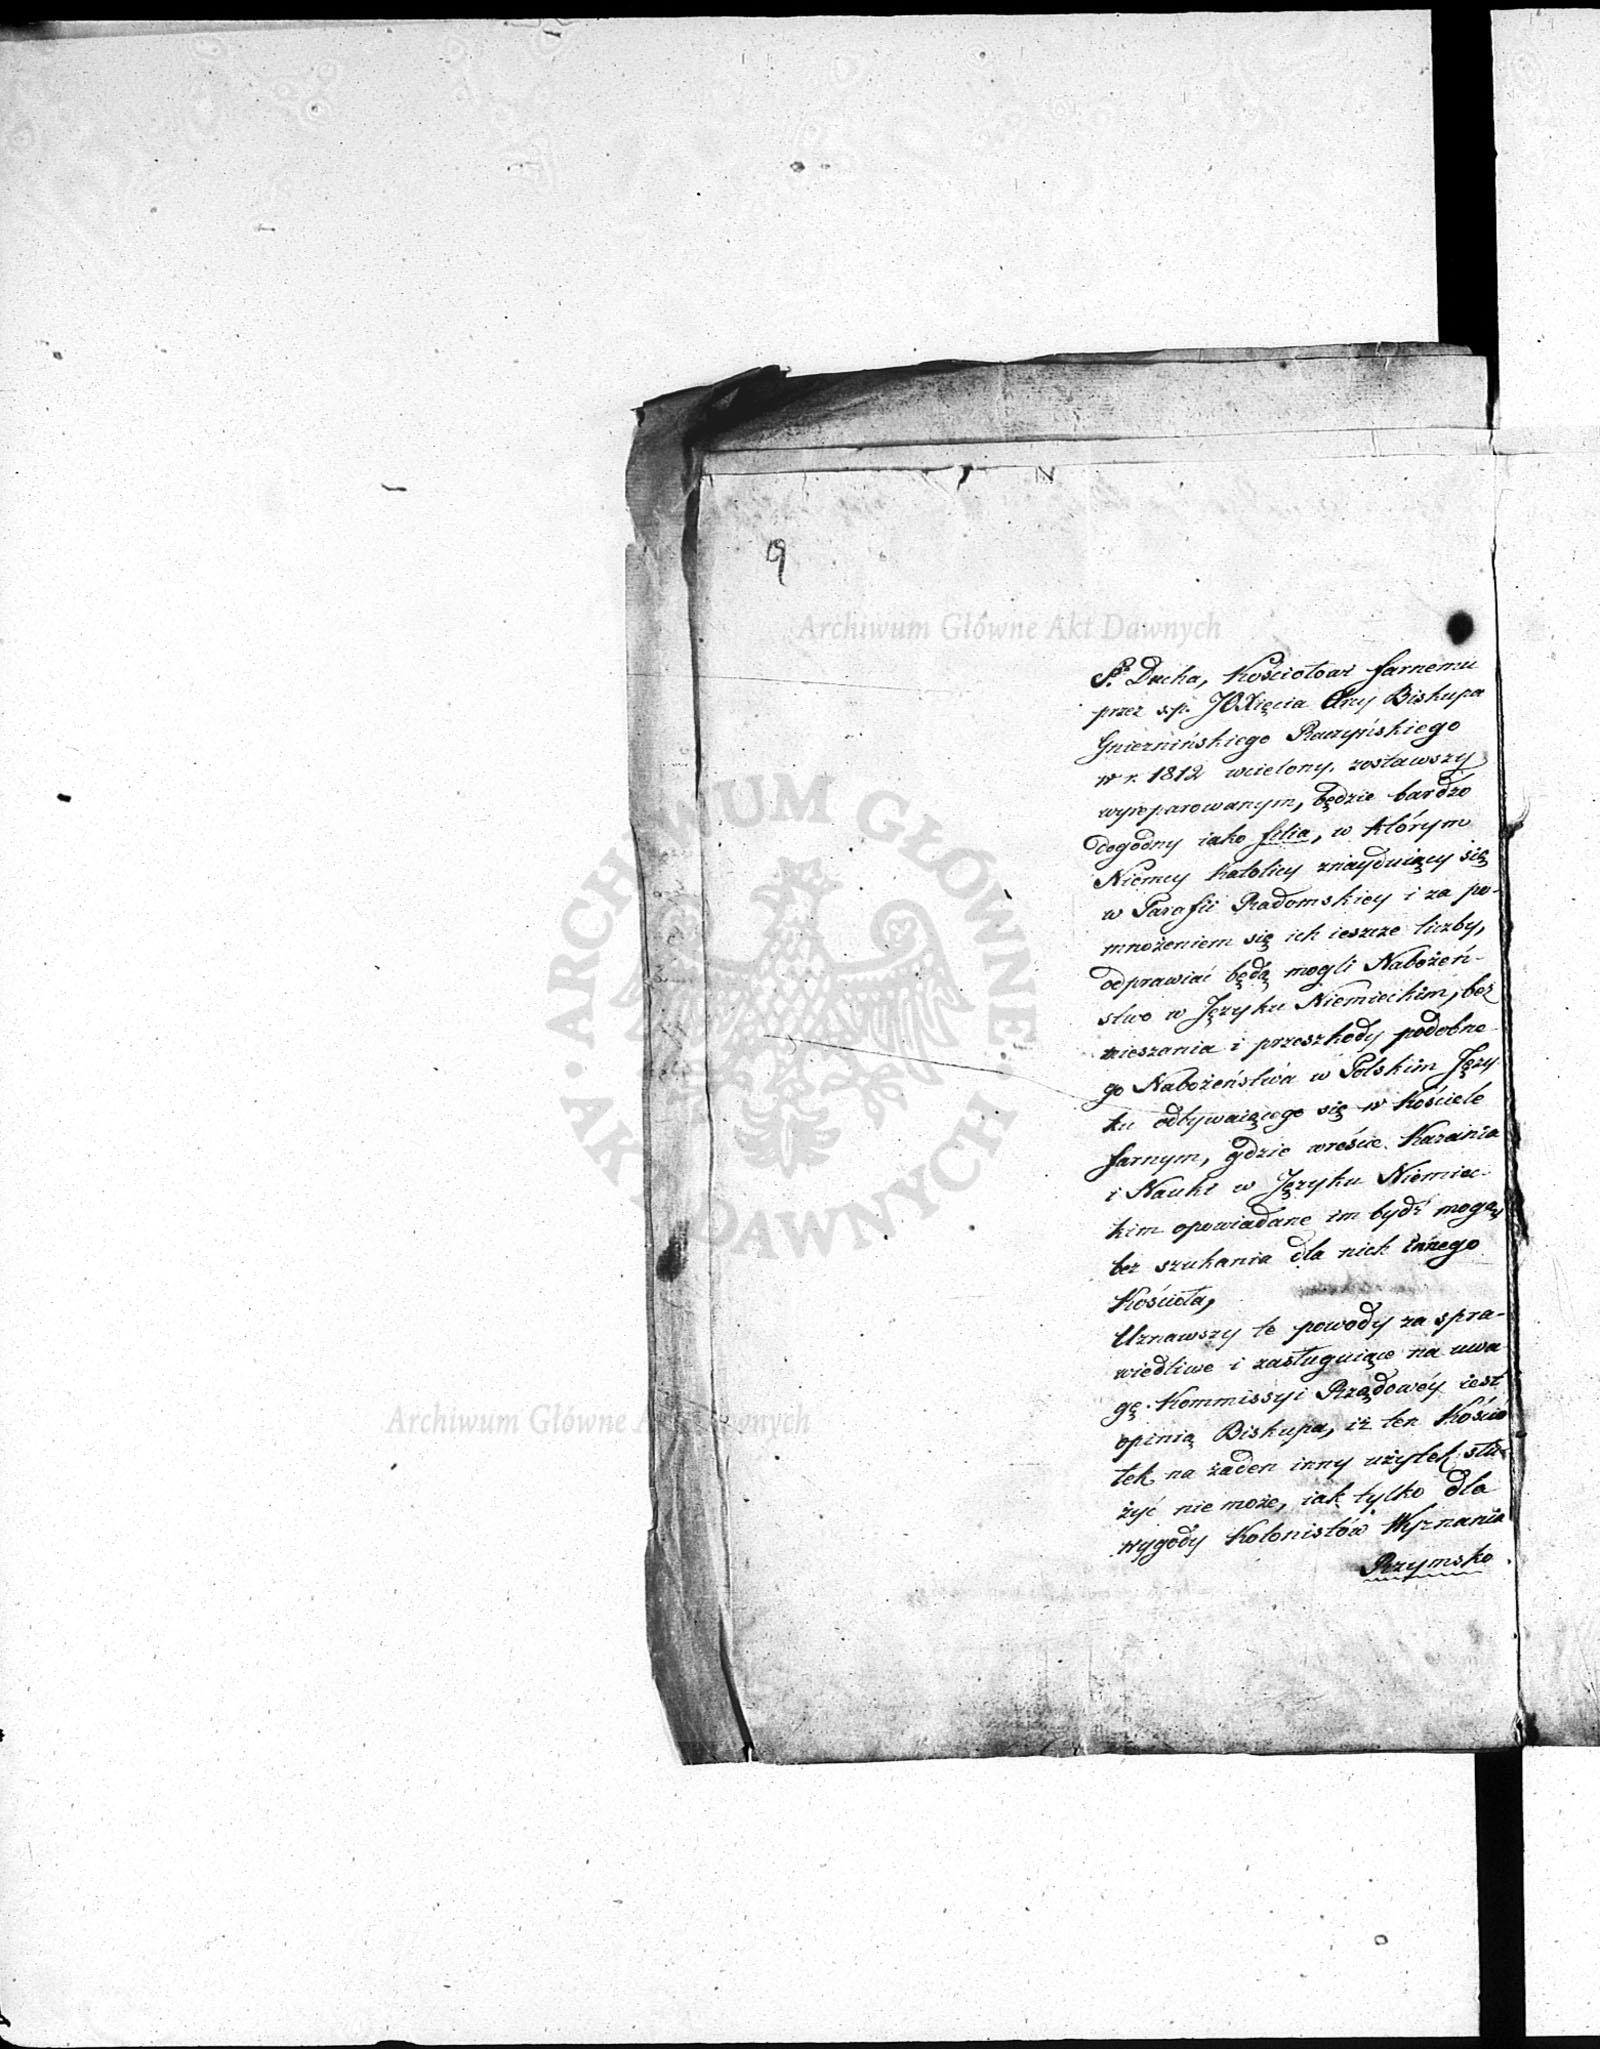 9
Archiwum Główne Akt Dawnych
Sgo Ducha, Kościołowi farnemu
przez s.p. JOXięcia Arcy Biskupa
Gnieznińskiego Raczyńskiego
w r. 1812 wcielony, zostawszy
wyreparowanym, będzie bardzo
dogodny iako filia, w którym
Niemcy Katolicy znayduiący się
w Parafii Radomskiey i za po-
mnożeniem się ich ieszcze liczby,
odprawiać będą mogli Nabożeń-
stwo w Języku Niemieckim, bez
mieszania i przeszkody podobne-
go Nabożeństwa w Polskim Języ
ku odbywaiącego się w Kościele
farnym, gdzie wreście Kazania
i Nauki w Języku Niemiec-
kim opowiadane im bydź mogą,
bez szukania dla nich innego
Kościoła,
Uznawszy te powody za spra-
wiedliwe i zasługuiące na uwa
gę Kommissyi Rządowéy iest
opinią Biskupa, iż ten Kośció
łek na żaden inny użytek słu-
żyć nie może, iak tylko dla
wygody Kolonistów Wyznania
Rzymsko
ARCHIWUM GŁÓWNE • AKT DAWNYCH •
Archiwum Główne Akt Dawnych